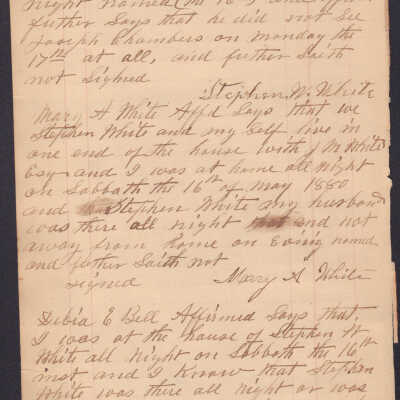 night named (the 16th
further Says that he did not See
Joseph Chambers on monday the
17th at all, and further Saith
not Signed
Stephen W. White
Mary A White Aff'd Says that we
Stephen White and my Self live in
one end of the house with J M White
Esq and I was at home all night
on Sabbath the 16th of May 1880
and Stephen White my husband
was there all night and not
away from home on Evening named
and further Saith not
Signed Mary A White
E Bell Affirmed Says that,
I was at the house of Stephen W
White all Night on Sabbath the 16th
inst and I Know that Stephen
White was there all night or was